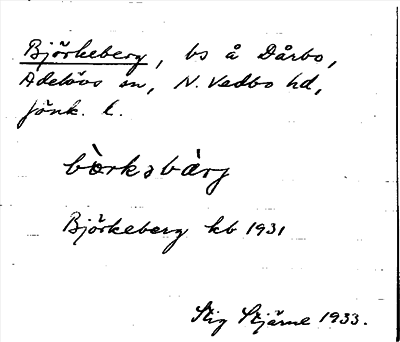 Björkeberg, bs å Dårbo,
Adelövs sn, N. Vedbo hd,
Jönk. l.
bö̀rkəbàrj
Björkeberg kb 1931
Stig Stjärne 1933.